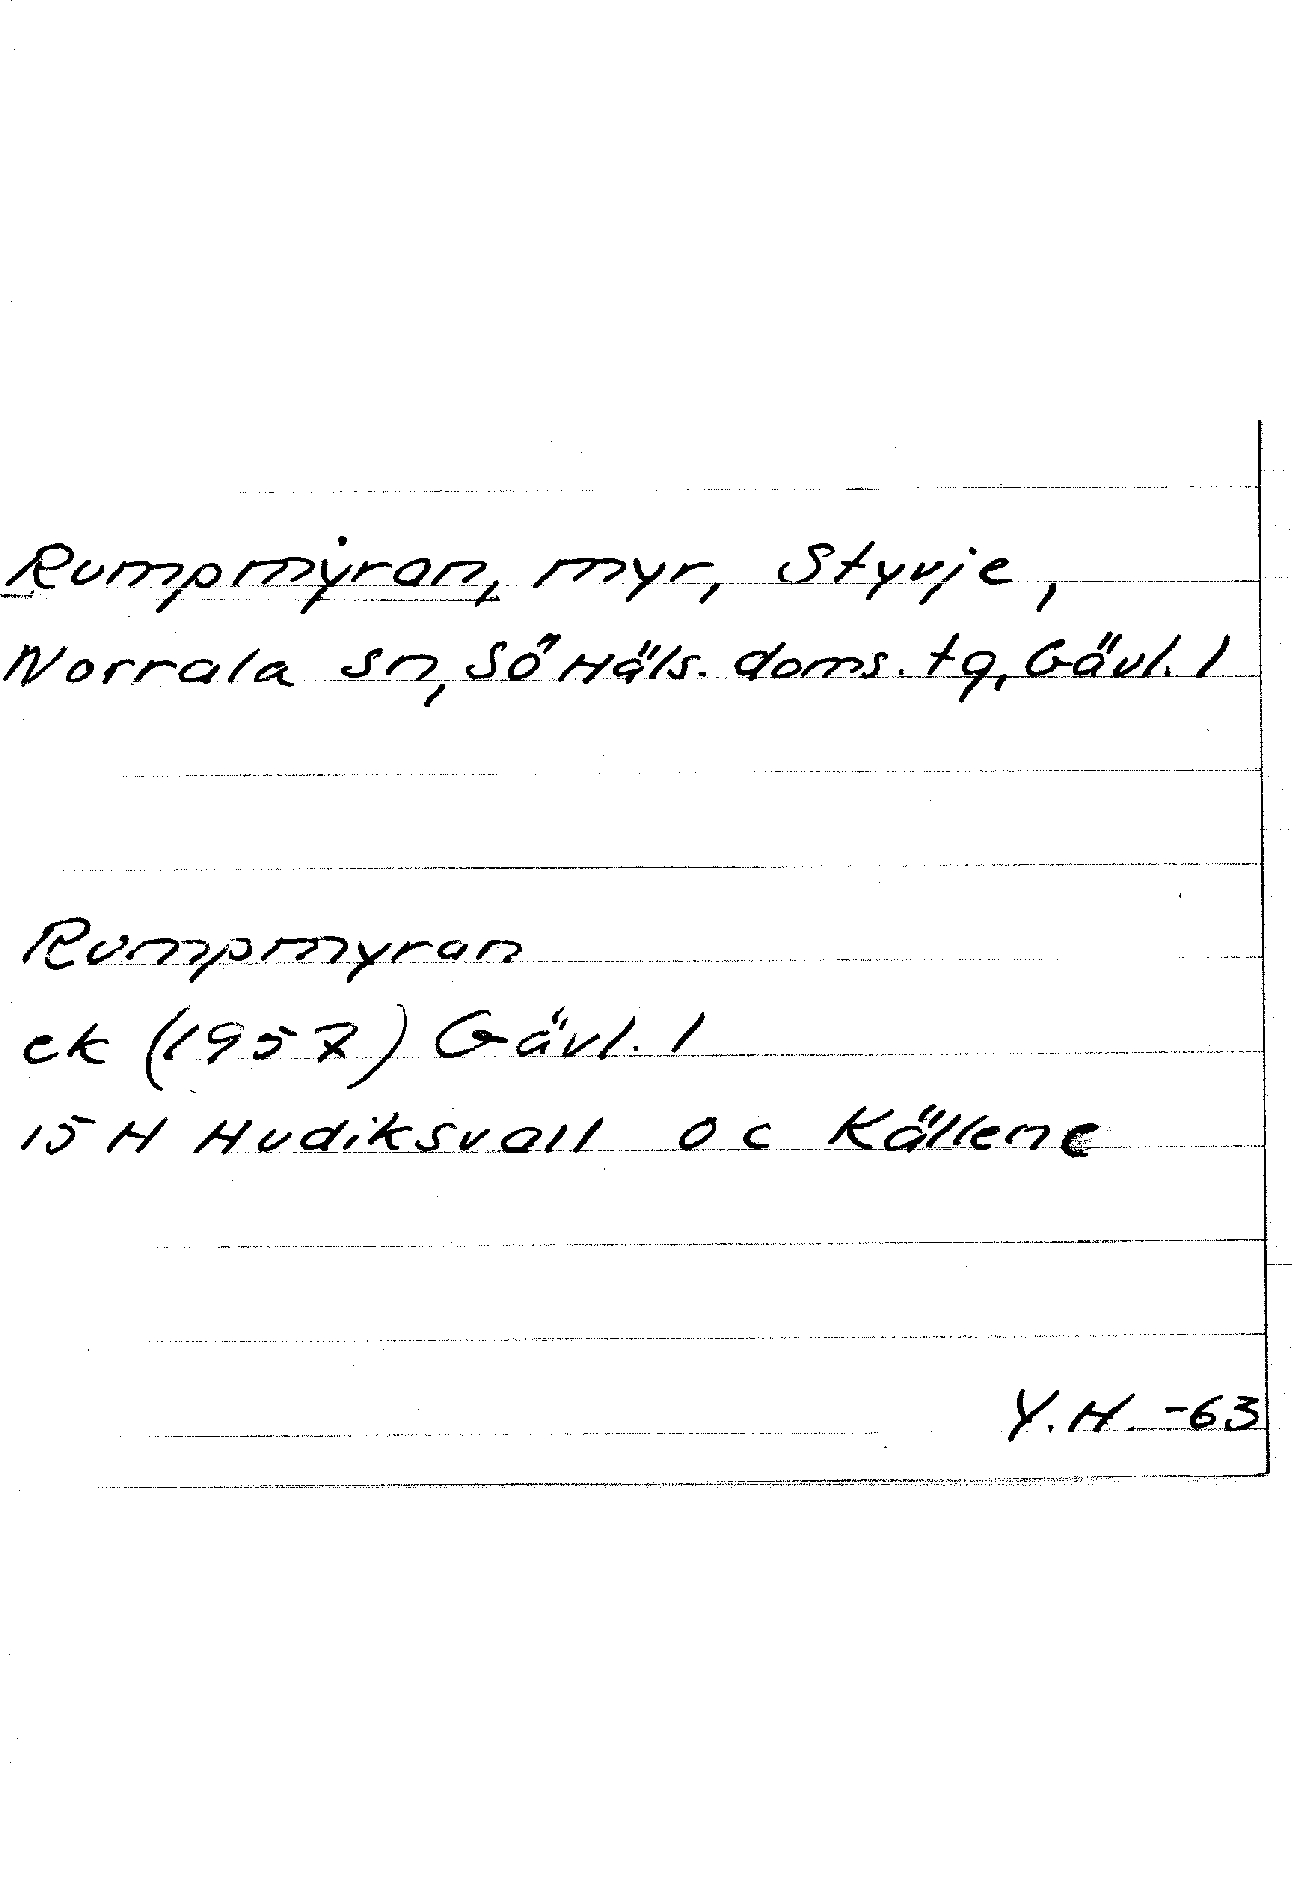 Rumpmyran, myr, Styvje,
Norrala sn, Sö Häls. doms. tg, Gävl. l
Rumpmyran
ek (1957) Gävl. l
15 H Hudiksvall 0 c Källene
Y.H. -63